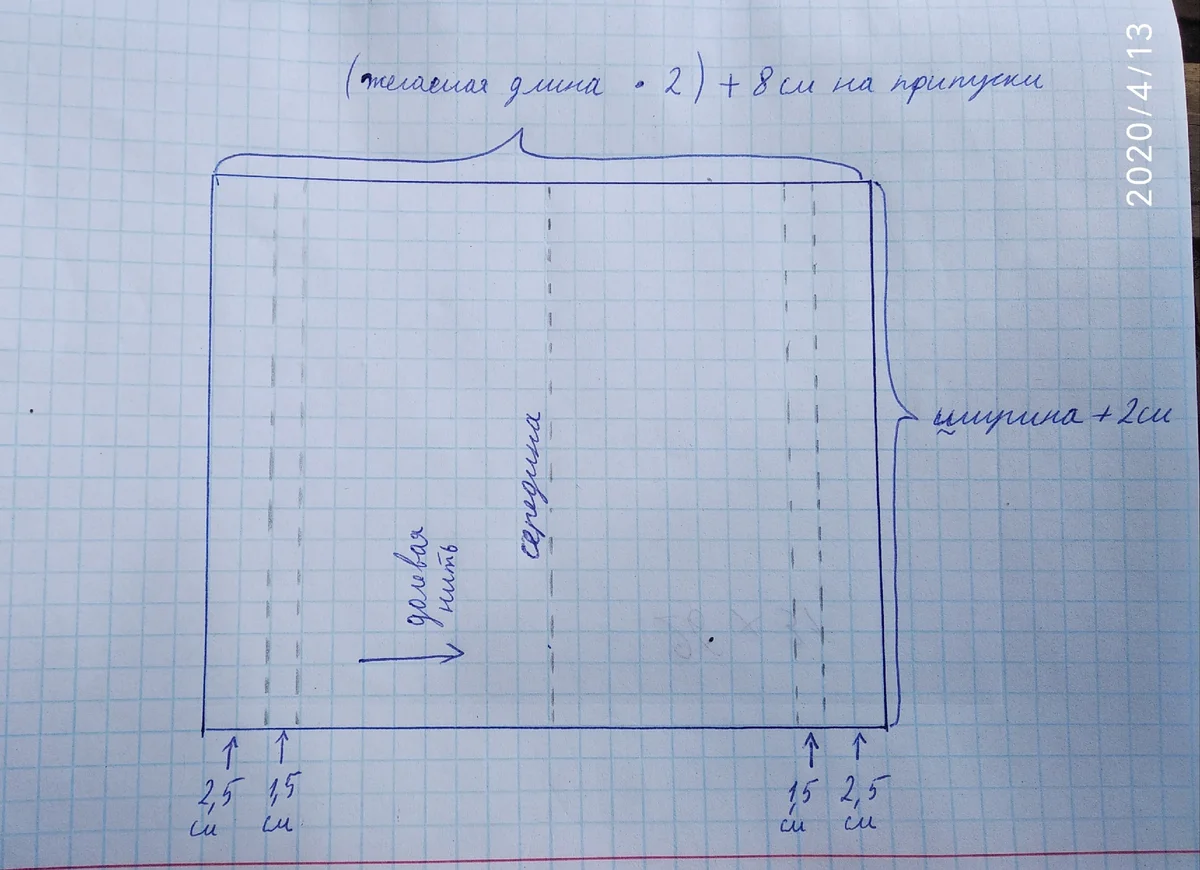 (желаемая длина · 2) + 8 см на припуски
2020/4/13
ширина + 2 см
середина
долевая
нить
2,5
см
1,5
см
1,5
см
2,5
см